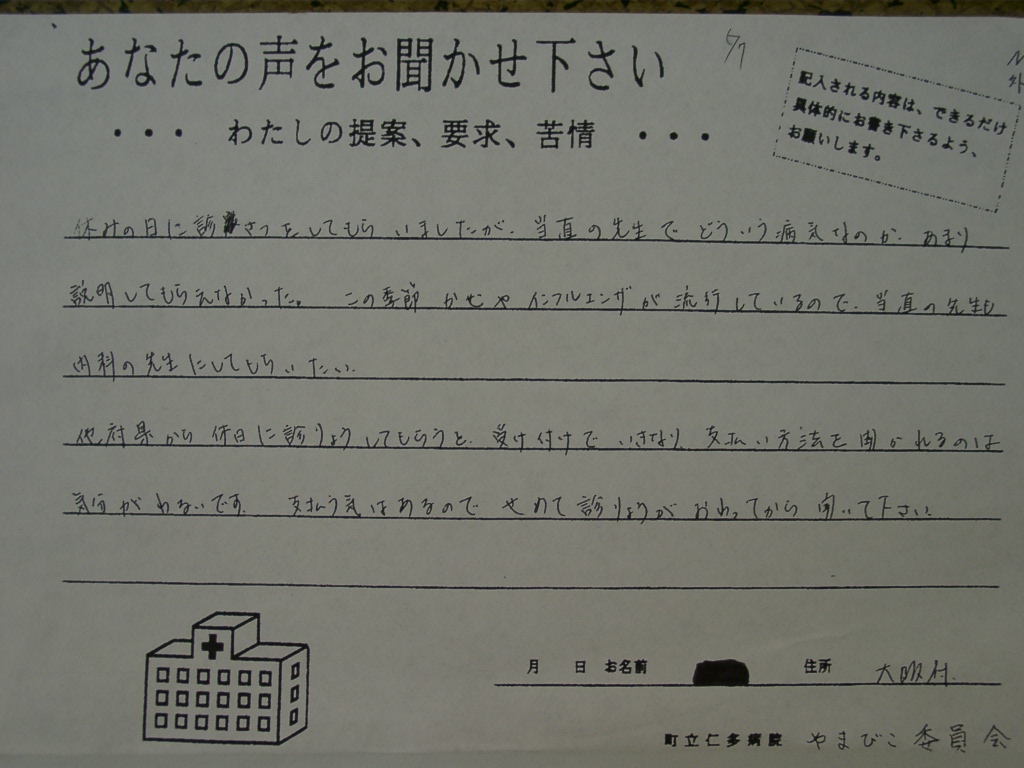 あなたの声をお聞かせ下さい
5/7
・・・ わたしの提案、要求、苦情 ・・・
記入される内容は、できるだけ
具体的にお書き下さるよう、
お願いします。
外
休みの日に診さつをしてもらいましたが、当直の先生でどういう病気なのか、あまり
説明してもらえなかった。この季節かぜやインフルエンザが流行しているので、当直の先生も
内科の先生にしてもらいたい。
他府県から休日に診りょうしてもらうと、受け付けでいきなり支払い方法を聞かれるのは
気分がわるいです。支払う気はあるので、せめて診りょうがおわってから聞いて下さい。
月 日 お名前 住所 大阪府.
町立仁多病院 やまびこ委員会